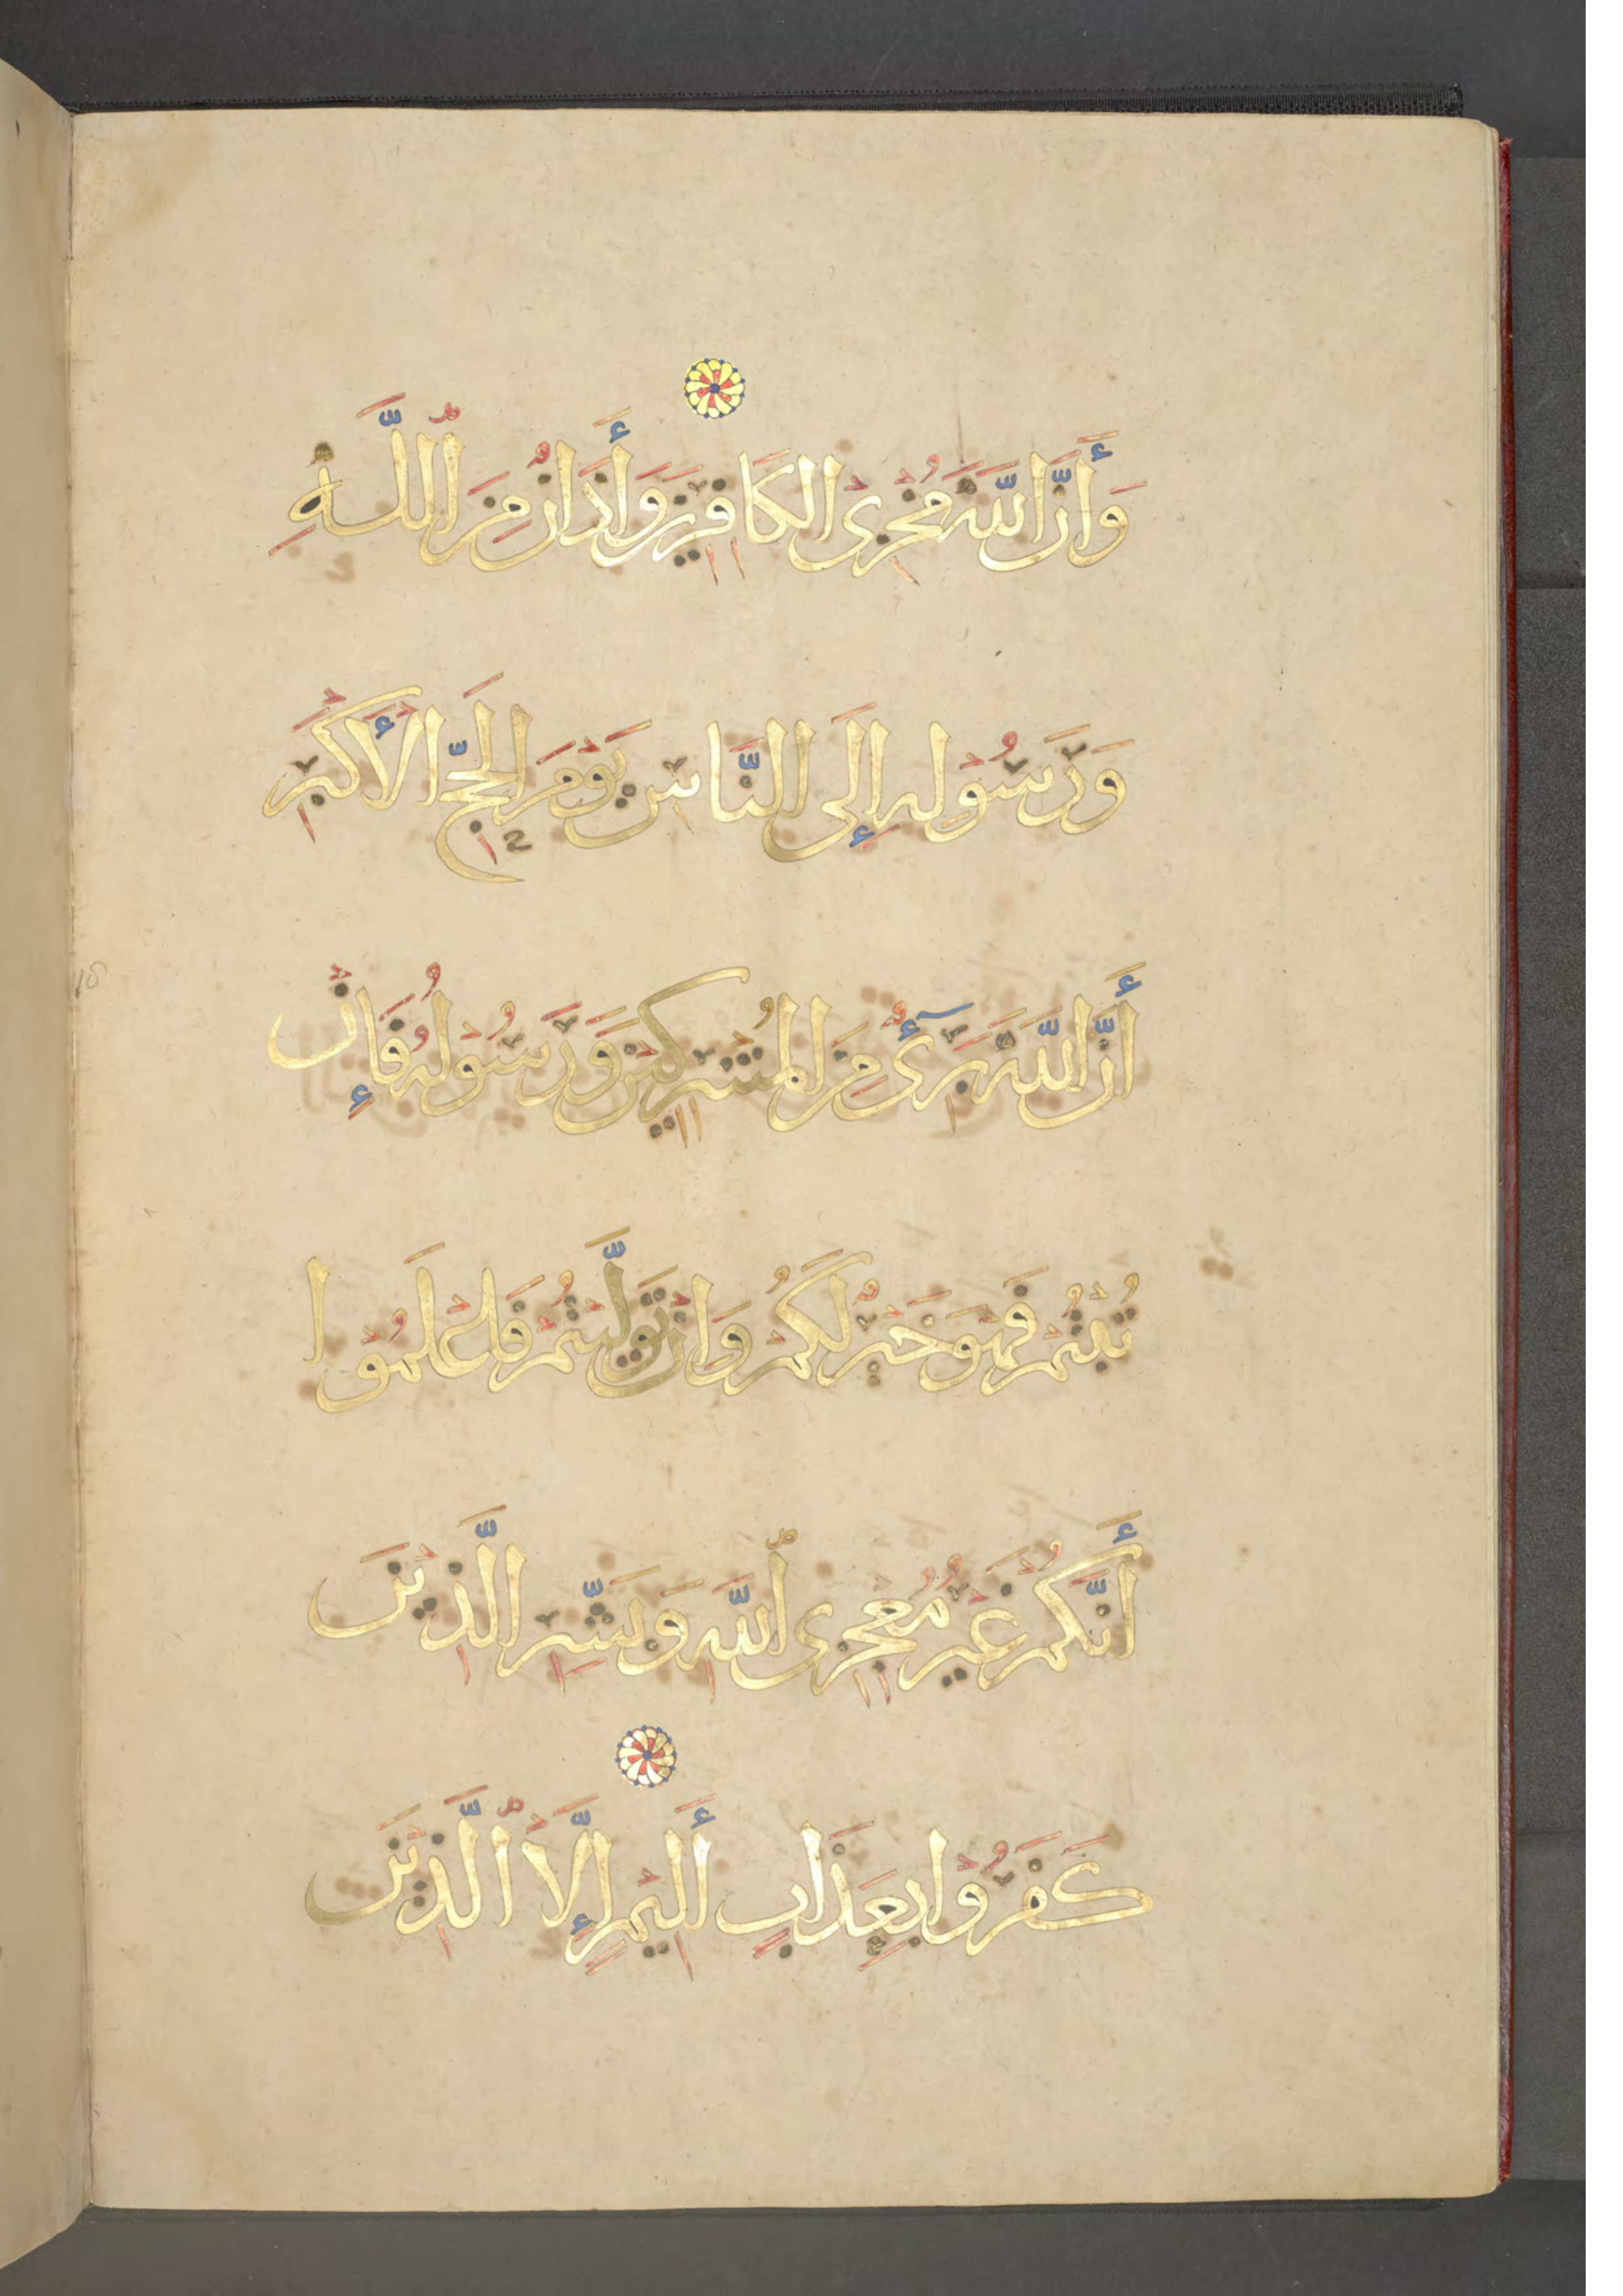 وَأَنَّ اللَّهَ مُخْزِى الْكَافِرِينَ وَأَذَانٌ مِنَ اللَّهِ
وَرَسُولِهِ إِلَى النَّاسِ يَوْمَ الْحَجِّ الْأَكْبَرِ
أَنَّ اللَّهَ بَرِىٓءٌ مِنَ الْمُشْرِكِينَ وَرَسُولُهُ فَإِنْ
تُبْتُمْ فَهُوَ خَيْرٌ لَكُمْ وَإِنْ تَوَلَّيْتُمْ فَاعْلَمُوا
أَنَّكُمْ غَيْرُ مُعْجِزِى اللَّهِ وَبَشِّرِ الَّذِينَ
كَفَرُوا بِعَذَابٍ أَلِيمٍ إِلَّا الَّذِينَ